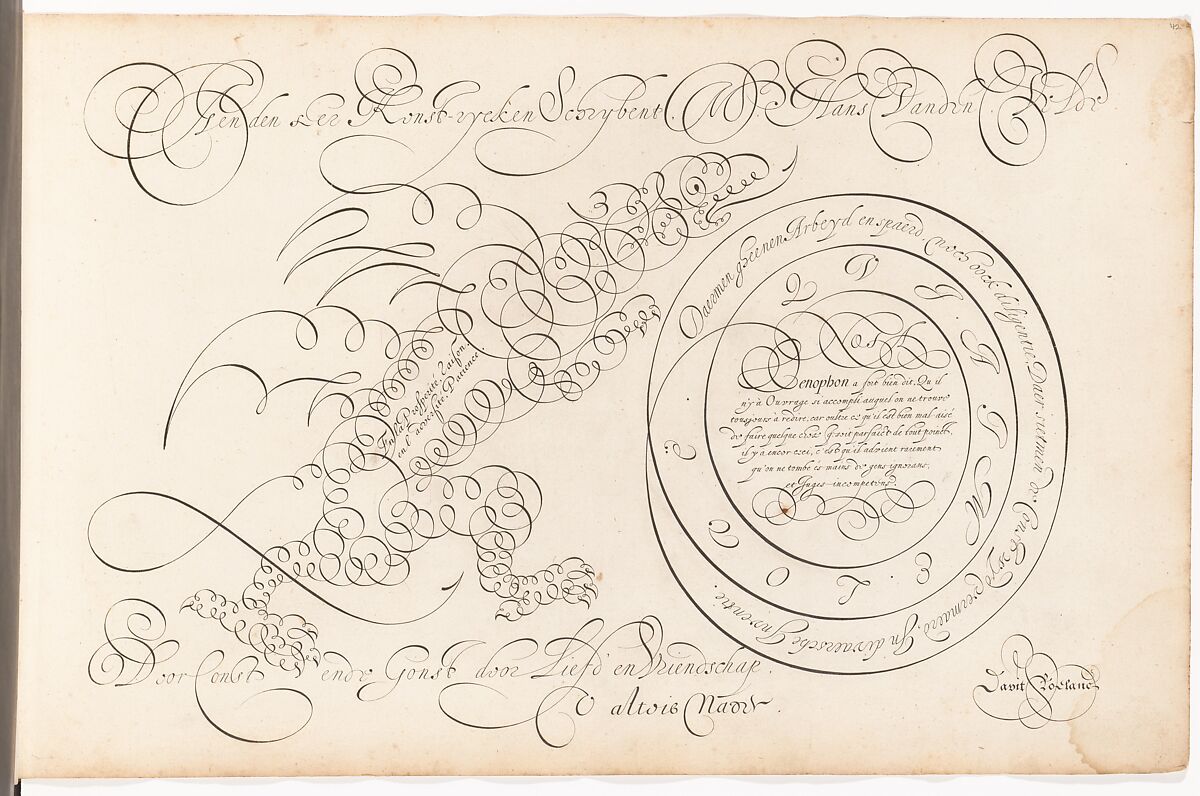 Aen den seer Konst-rycken Schrybent. M.r Hans Vanden Velde.
En la Prosperité, Raison
en l'adversité, Patience
Daermen gheenen Arbeyd en spaerd, noch oock diligentie. Daer sietmen de Const vermaerd, In diversche Inventie.
Xenophon a fort bien dit, Qu'il
n'y à Ouvrage si accompli auquel on ne trouve
tousjours à redire, car oultre ce qu'il est bien mal-aisé
de faire quelque chose q̃ soit parfaict de tout poinct,
il y a encor ceci, c'est qu'il advient rarement
qu'on ne tombe és mains de gens ignorans,
et Juges incompetens.
Door Const ende Gonst door Liefd' en Vriendschap.
altois Mader.
Davit Roelands
42